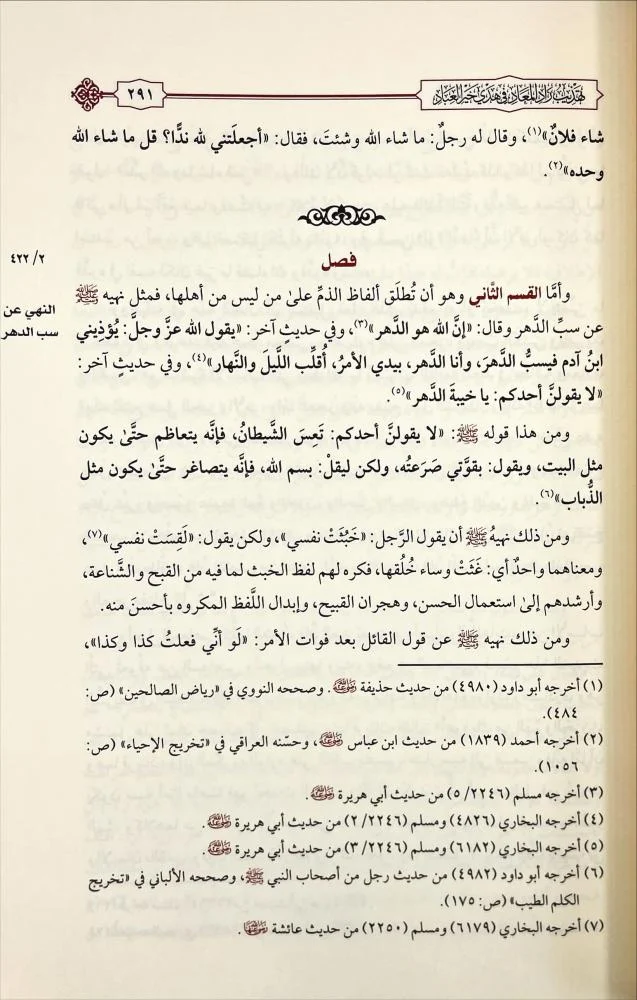 تهذيب زاد المعاد في هدي خير العباد
٢٩١
شاء فلانٌ»(١)، وقال له رجلٌ: ما شاء الله وشئتَ، فقال: «أجعلَتني لله ندًّا؟ قل ما شاء الله
وحده»(٢).
فصل
٢/ ٤٢٢
وأمَّا القسم الثَّاني وهو أن تُطلَق ألفاظ الذمِّ علىٰ من ليس من أهلها، فمثل نهيه ﷺ
النهي عن
سب الدهر
عن سبِّ الدَّهر وقال: «إنَّ الله هو الدَّهر»(٣)، وفي حديثٍ آخر: «يقول الله عزَّ وجلَّ: يُؤذِيني
ابنُ آدم فيسبُّ الدَّهرَ، وأنا الدَّهر، بيدي الأمرُ، أُقلِّب اللَّيلَ والنَّهار»(٤)، وفي حديثٍ آخر:
«لا يقولنَّ أحدكم: يا خيبةَ الدَّهر»(٥).
ومن هذا قوله ﷺ: «لا يقولنَّ أحدكم: تَعِسَ الشَّيطانُ، فإنَّه يتعاظم حتَّىٰ يكون
مثل البيت، ويقول: بقوَّتي صَرَعتُه، ولكن ليقلْ: بسم الله، فإنَّه يتصاغر حتَّىٰ يكون مثل
الذُّباب»(٦).
ومن ذلك نهيهُ ﷺ أن يقول الرَّجل: «خَبُثَتْ نفسي»، ولكن يقول: «لَقِسَتْ نفسي»(٧)،
ومعناهما واحدٌ أي: غَثَتْ وساء خُلُقها، فكره لهم لفظ الخبث لما فيه من القبح والشَّناعة،
وأرشدهم إلىٰ استعمال الحسن، وهجران القبيح، وإبدال اللَّفظ المكروه بأحسنَ منه.
ومن ذلك نهيه ﷺ عن قول القائل بعد فوات الأمر: «لَو أنِّي فعلتُ كذا وكذا»،
(١) أخرجه أبو داود (٤٩٨٠) من حديث حذيفة رضي الله عنه. وصححه النووي في «رياض الصالحين» (ص:
٤٨٤).
(٢) أخرجه أحمد (١٨٣٩) من حديث ابن عباس رضي الله عنه، وحسّنه العراقي في «تخريج الإحياء» (ص:
١٠٥٦).
(٣) أخرجه مسلم (٢٢٤٦/ ٥) من حديث أبي هريرة رضي الله عنه.
(٤) أخرجه البخاري (٤٨٢٦) ومسلم (٢٢٤٦/ ٢) من حديث أبي هريرة رضي الله عنه.
(٥) أخرجه البخاري (٦١٨٢) ومسلم (٢٢٤٦/ ٣) من حديث أبي هريرة رضي الله عنه.
(٦) أخرجه أبو داود (٤٩٨٢) من حديث رجل من أصحاب النبي ﷺ، وصححه الألباني في «تخريج
الكلم الطيب» (ص: ١٧٥).
(٧) أخرجه البخاري (٦١٧٩) ومسلم (٢٢٥٠) من حديث عائشة رضي الله عنها.